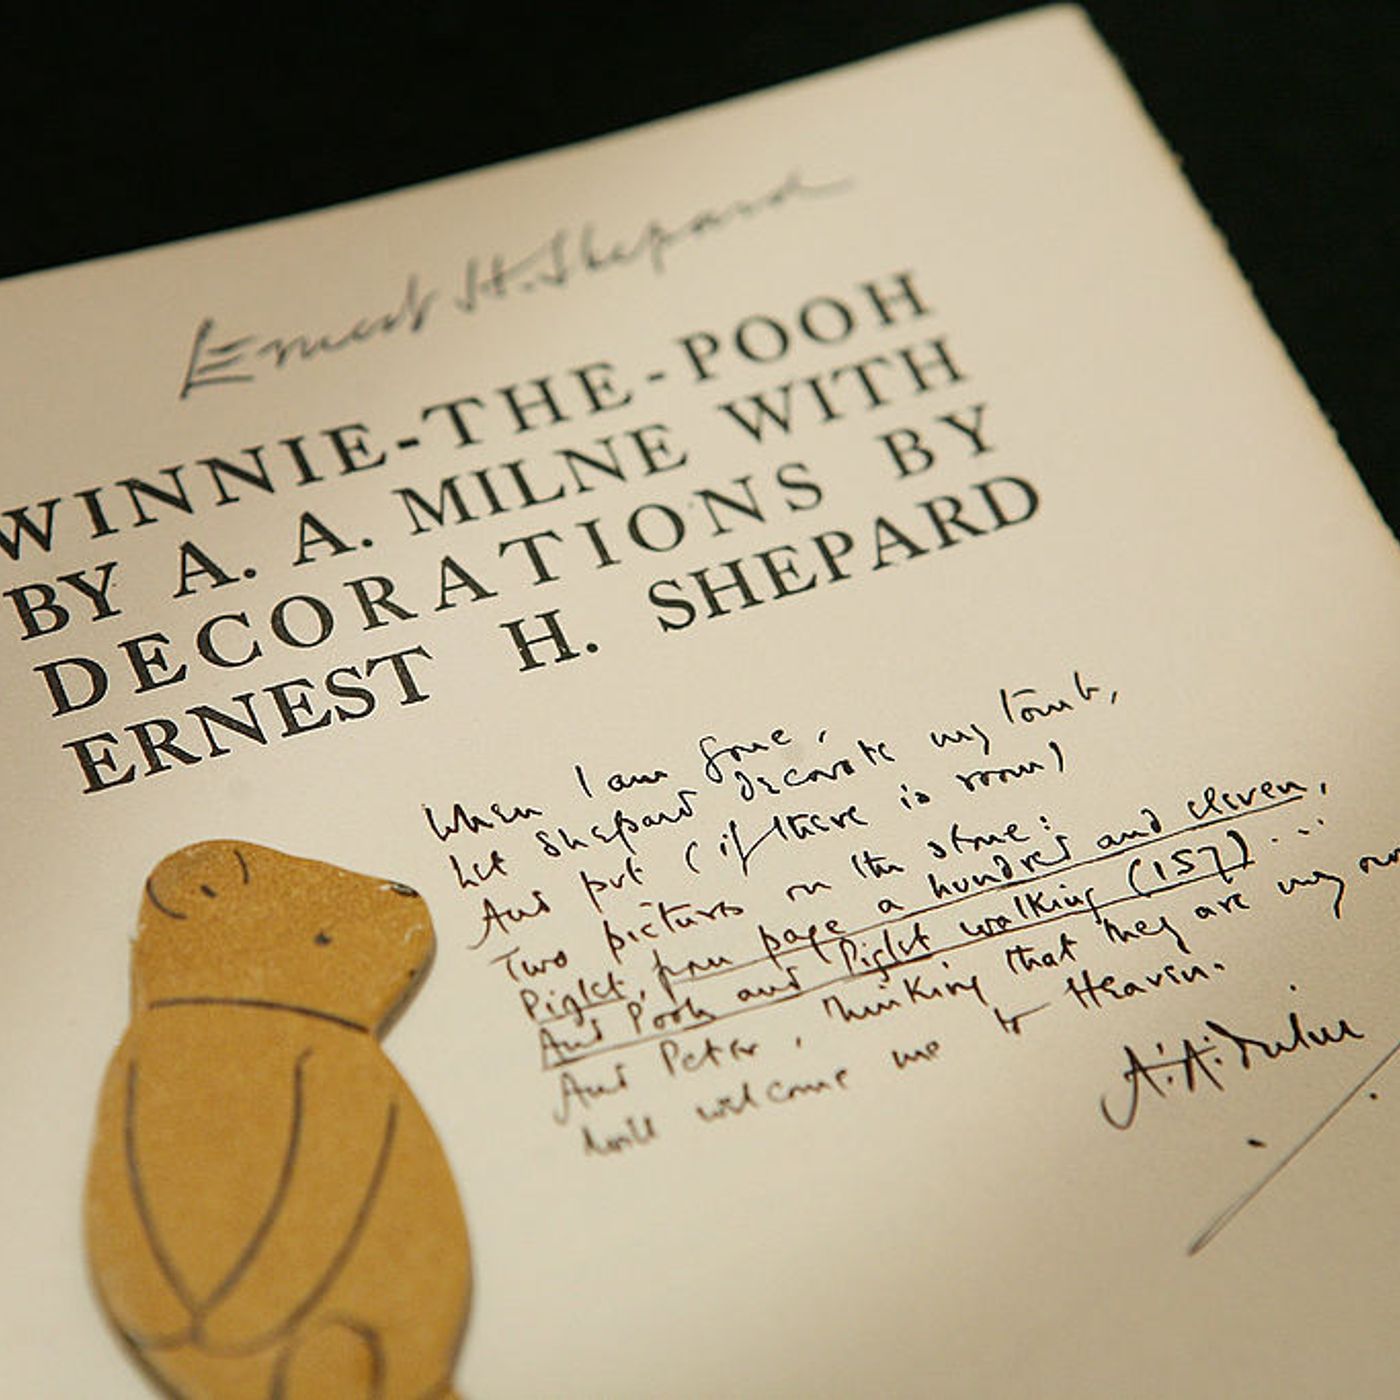 Ernest H. Shepard
WINNIE-THE-POOH
BY A. A. MILNE WITH
DECORATIONS BY
ERNEST H. SHEPARD
When I am gone,
Let Shepard decorate my tomb,
And put (if there is room)
Two pictures on the stone:
Piglet, from page a hundred and eleven,
And Pooh and Piglet walking (157) ...
And Peter, thinking that they are my
Will welcome me to Heaven.
A. A. Milne